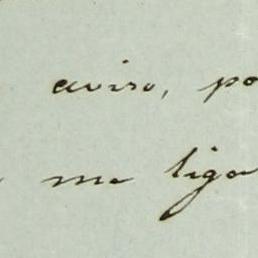 aviso, po
me liga